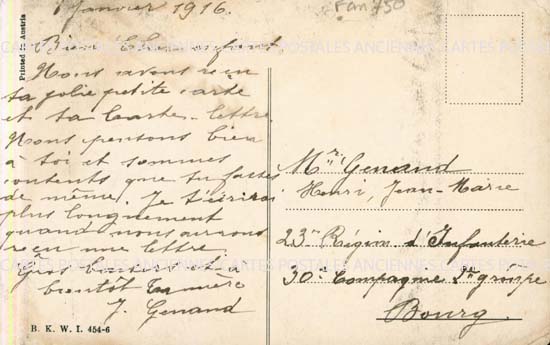 1 Janvier 1916.
Bien Cher enfant
Nous avons reçu
ta jolie petite carte
et ta Cartes-lettre.
Nous pensons bien
à toi et sommes
contents que tu fasses
de même. Je t'écrirai
plus longuement
quand nous aurons
reçu une lettre.
Gros baisers et à
bientôt ta mère
J. Genand
Printed in Austria
B. K. W. I. 454-6
Fan 750
Mr Genand
Henri, Jean-Marie
23e Régim d'Infanterie
30e Compagnie 2e groupe
Bourg.
CARTES POSTALES ANCIENNES